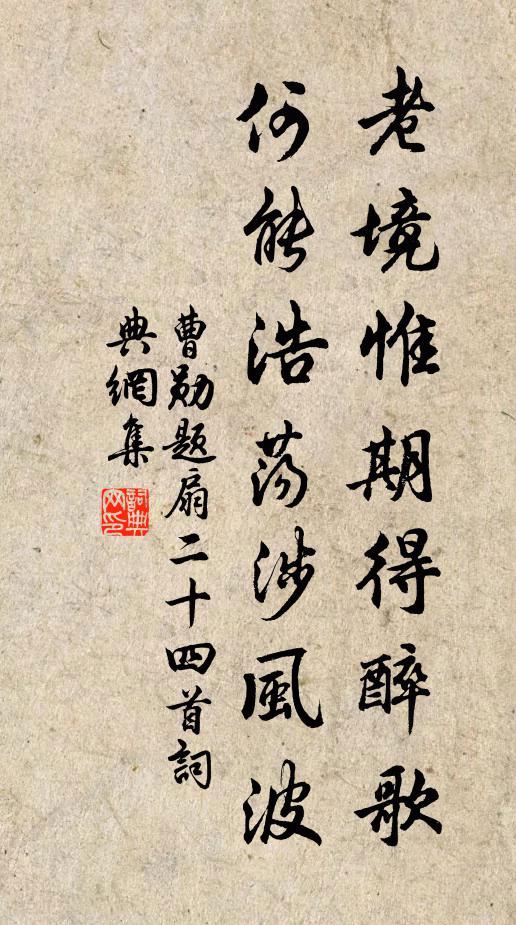 老境惟期得醉歌
何能浩荡涉風波
曹勛题扇二十四首詞
典網集
詞典网印